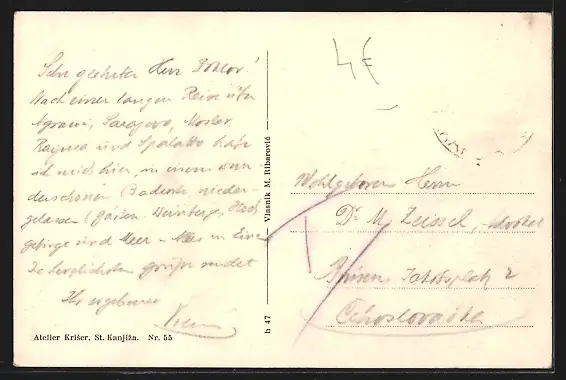 Sehr geehrter Herr Doktor!
Nach einer langen Reise über
Agram, Sarajevo, Mostar,
Ragusa und Spalato habe
ich mich hier, in einem wun-
derschönen Badeorte nieder-
gelassen
gebirge und Meer – Alles in Einem
Die herzlichsten Grüße sendet
Ihr ergebener
Atelier Krišer. St. Kanjiža. Nr. 55
h 47 — Vlasnik M. Ribarović —
4 €
Wohlgeboren Herrn
Dr. M. Zeissel, Advokat
Brünn, Jakobsplatz 2
Čehoslovačka